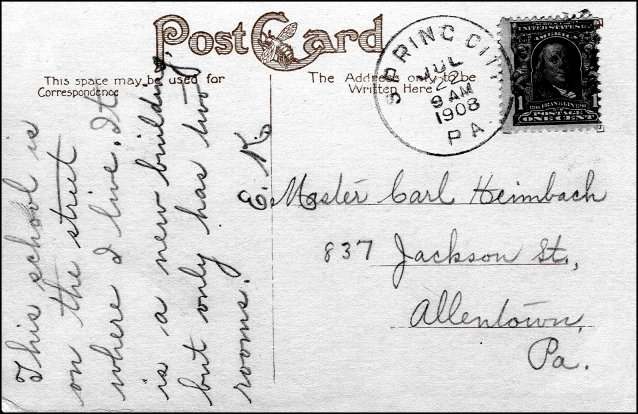 Post Card
This space may be used for
Correspondence
The Address only to be
Written Here
SPRING CITY
JUL
22
9 AM
1908
PA
UNITED STATES
FRANKLIN
1 1
POSTAGE
ONE CENT
This school is
on the street
where I live. It
is a new building,
but only has two
rooms.
E. K.
Master Carl Heimbach
837 Jackson St.,
Allentown,
Pa.